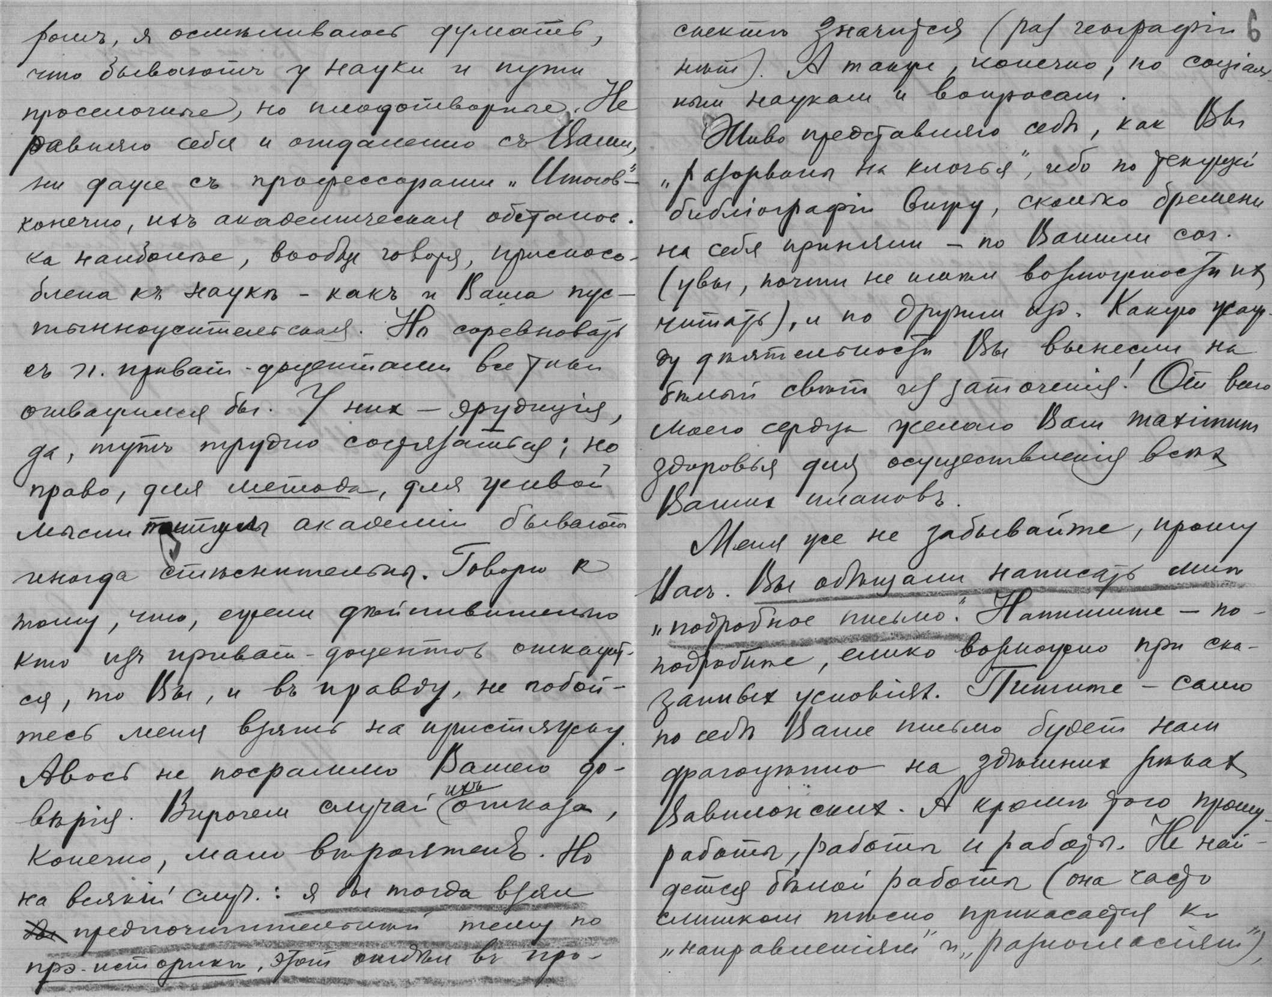 рошъ, я осмѣливаюсь думать,
что бываютъ у науки и пути
проселочные, но плодотворные. Не
равняю себя и отдаленно съ Вами,
ни даже съ профессорами „Итогов" –
конечно, ихъ академическая обстанов-
ка наиболѣе, вообще говоря, приспосо-
блена къ наукѣ – какъ и Ваша пус-
тынножительская. Но соревновать
съ п. приват-доцентами все таки
отважился бы. У них – эрудиція,
да, тутъ трудно состязаться; но
право, для метода, для живой
мысли академіи бываютъ
иногда стѣснительны. Говорю к
тому, что, ежели дѣйствительно
кто изъ приват-доцентов откажет-
ся, то Вы, и въ правду, не побой-
тесь меня взять на пристяжку.
Авось не посрамлю Вашего до-
вѣрія. Впрочем случай ихъ отказа,
конечно, мало вѣроятенъ. Но
на всякій случ.: я бы тогда взял
предпочтительнѣй тему по
прэ-исторіи, этот отдѣл въ про-
6
спектѣ значится (раз географіи
нѣт). А также, конечно, по соціаль
ным наукам и вопросам.
Живо представляю себѣ, как Вы
„разорваны на клочья", ибо по текущей
библіографіи вижу, сколько бремени
на себя приняли – по Вашим соч.
(увы, почти не имѣю возможности их
читать), и по другим изд. Какую жаж-
ду дѣятельности Вы вынесли на
бѣлый свѣт из заточенія! От всего
моего сердца желаю Вам maximum
здоровья для осуществленія всѣх
Ваших планов.
Меня уже не забывайте, прошу
Васъ. Вы обѣщали написать мнѣ
„подробное письмо". Напишите – по-
подробнѣе, елико возможно при ска-
занных условіях. Пишите – само
по себѣ Ваше письмо будет нам
драгоцѣнно на здѣшних рѣках
Вавилонских. А кромѣ того прошу –
работы, работы и работы. Не най-
дется бѣлой работы (она часто
слишком тѣсно прикасается к
„направленіям" и „разногласіям"),